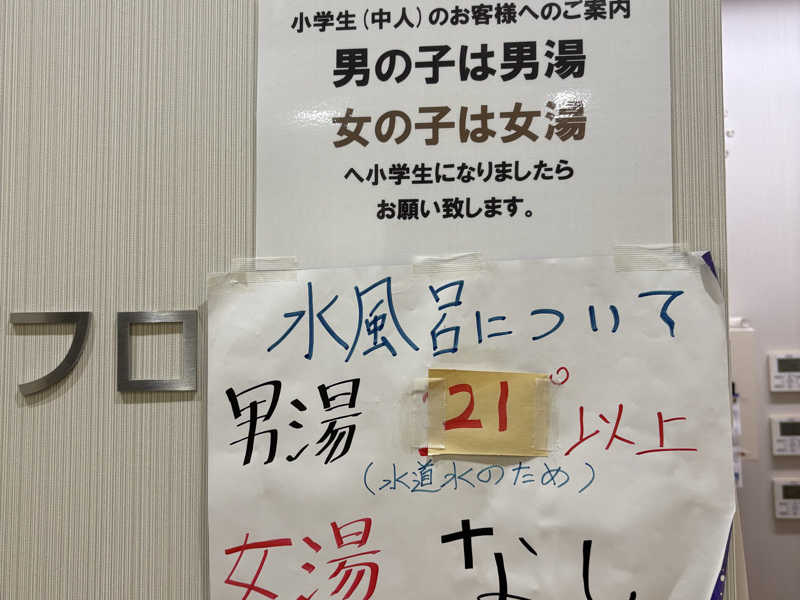 小学生(中人)のお客様へのご案内
男の子は男湯
女の子は女湯
へ小学生になりましたら
お願い致します。
フロ
水風呂について
男湯 21°以上
(水道水のため)
女湯 なし